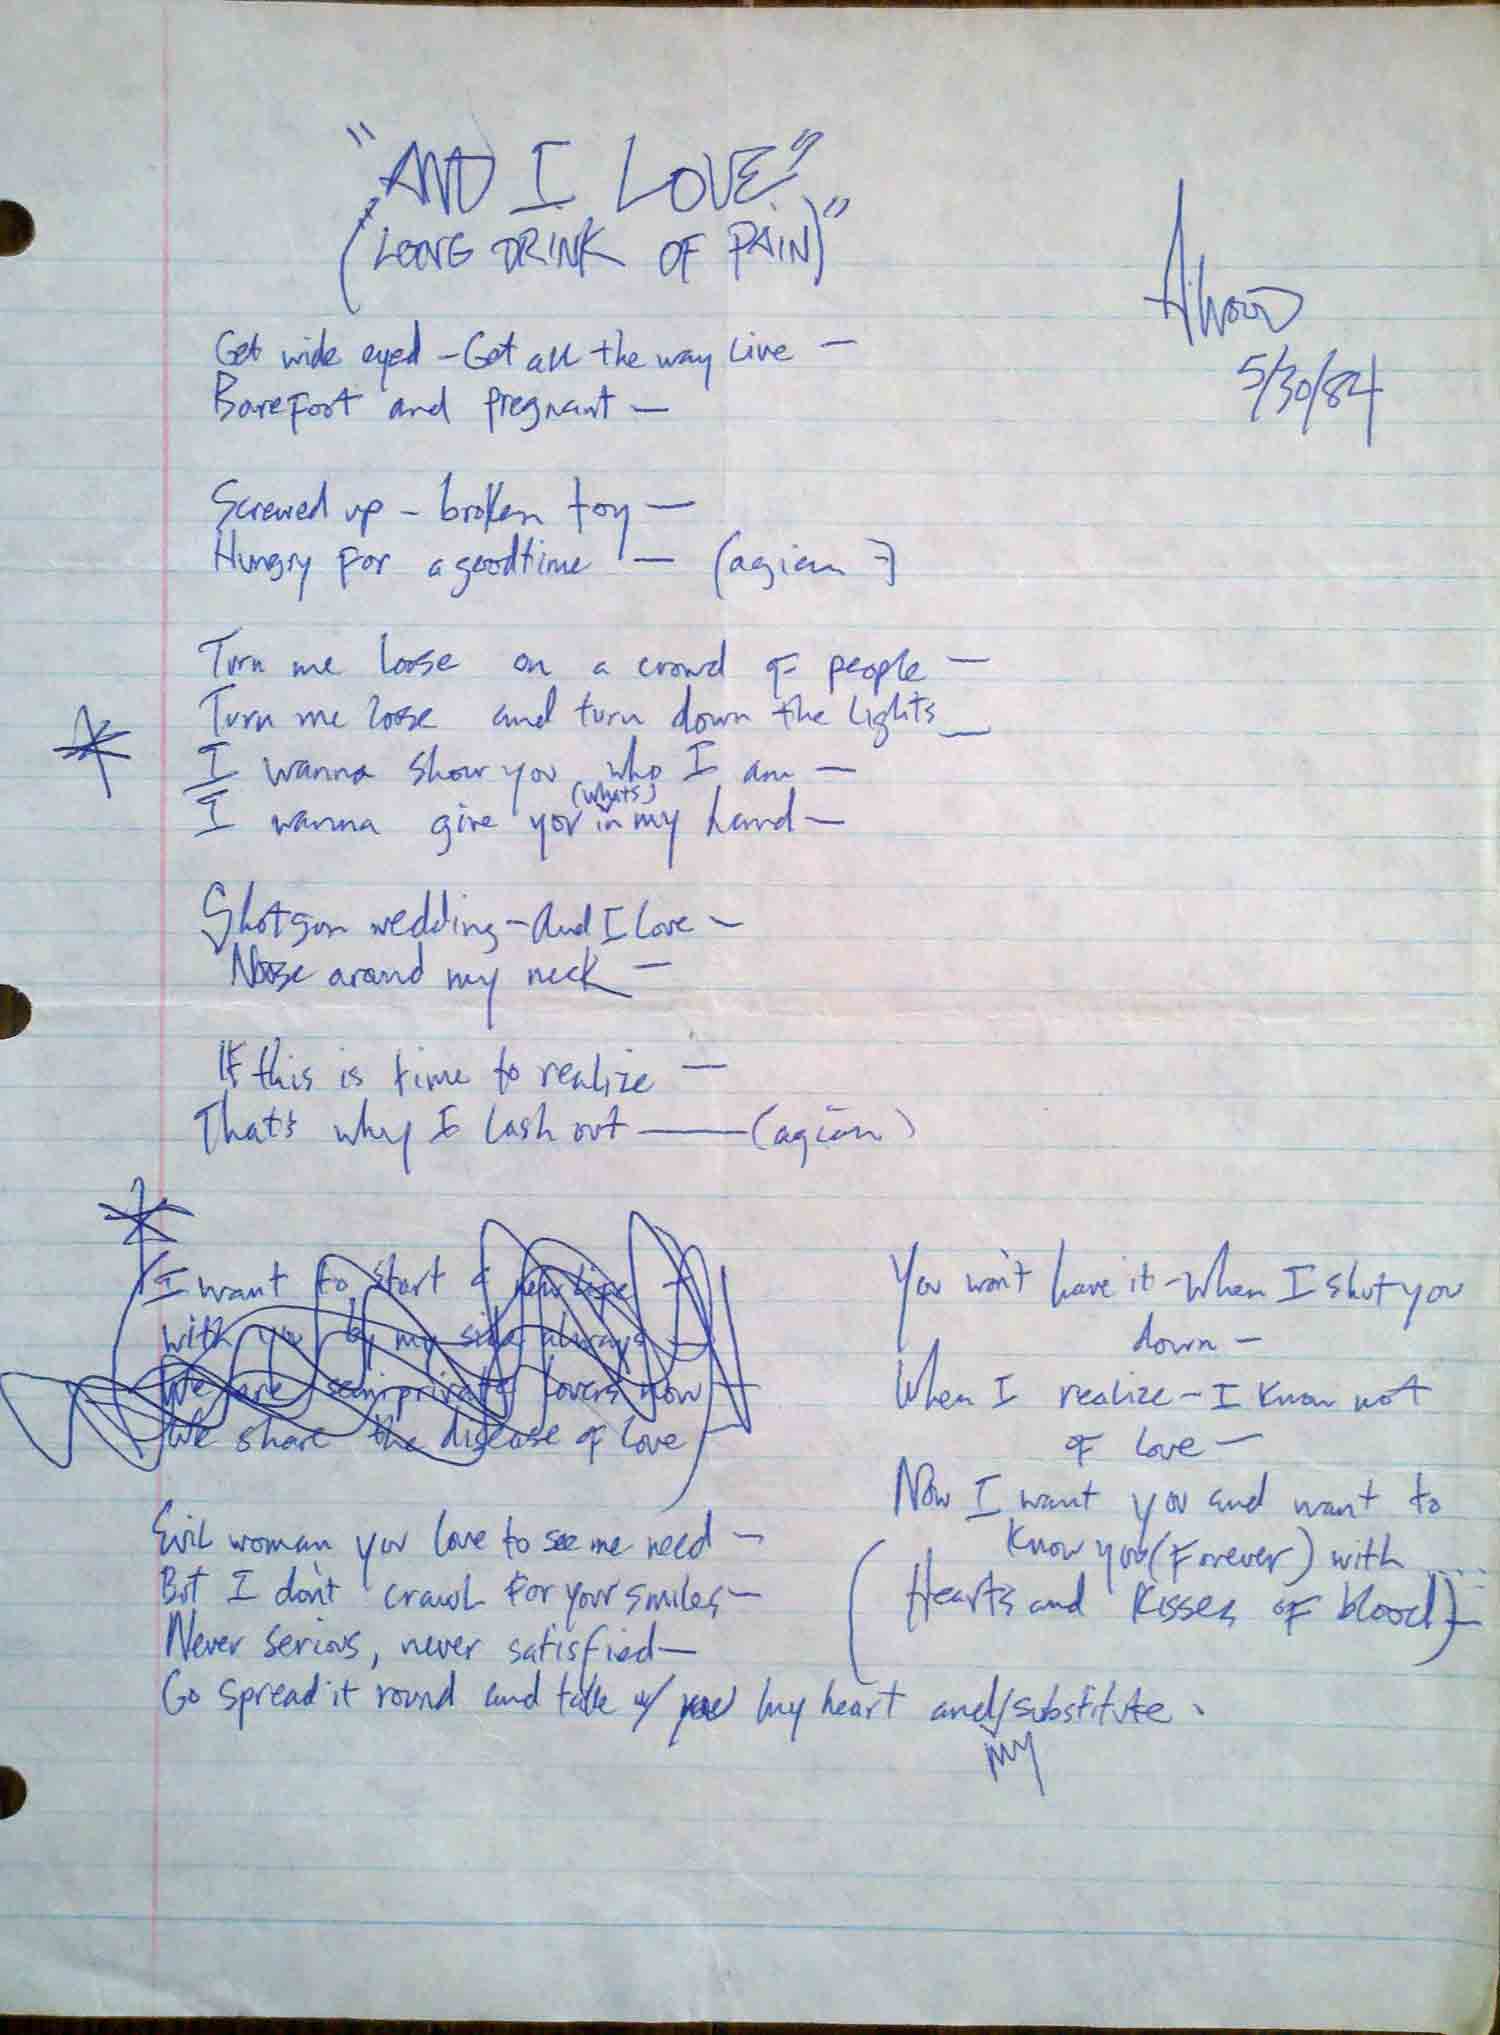 "AND I LOVE?"
(LONG DRINK OF PAIN)"
AWood
5/30/84
Get wide eyed - Get all the way live —
Barefoot and pregnant —
Screwed up - broken toy —
Hungry for a goodtime — (agian)
Turn me loose on a crowd of people —
Turn me loose and turn down the lights —
* I wanna show you who I am —
(whats)
I wanna give you in my hand —
Shotgun wedding - And I Love —
Noose around my neck —
If this is time to realize —
That's why I lash out —— (agian)
* (I want to start a new life —
with you by my side always —
We are semiprivate lovers now —
We share the disease of love —)
Evil woman you love to see me need —
But I don't crawl for your smiles —
Never serious, never satisfied —
Go spread it round and take w/ you my heart and/substitute.
my
You won't have it - When I shut you
down —
When I realize - I know not
of love —
Now I want you and want to
know you (Forever) with ....
(Hearts and kisses of blood) —